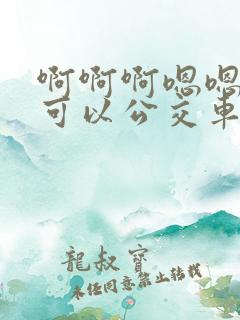 啊啊啊嗯嗯
可以公交车
龍叔寶
未经同意禁止转载